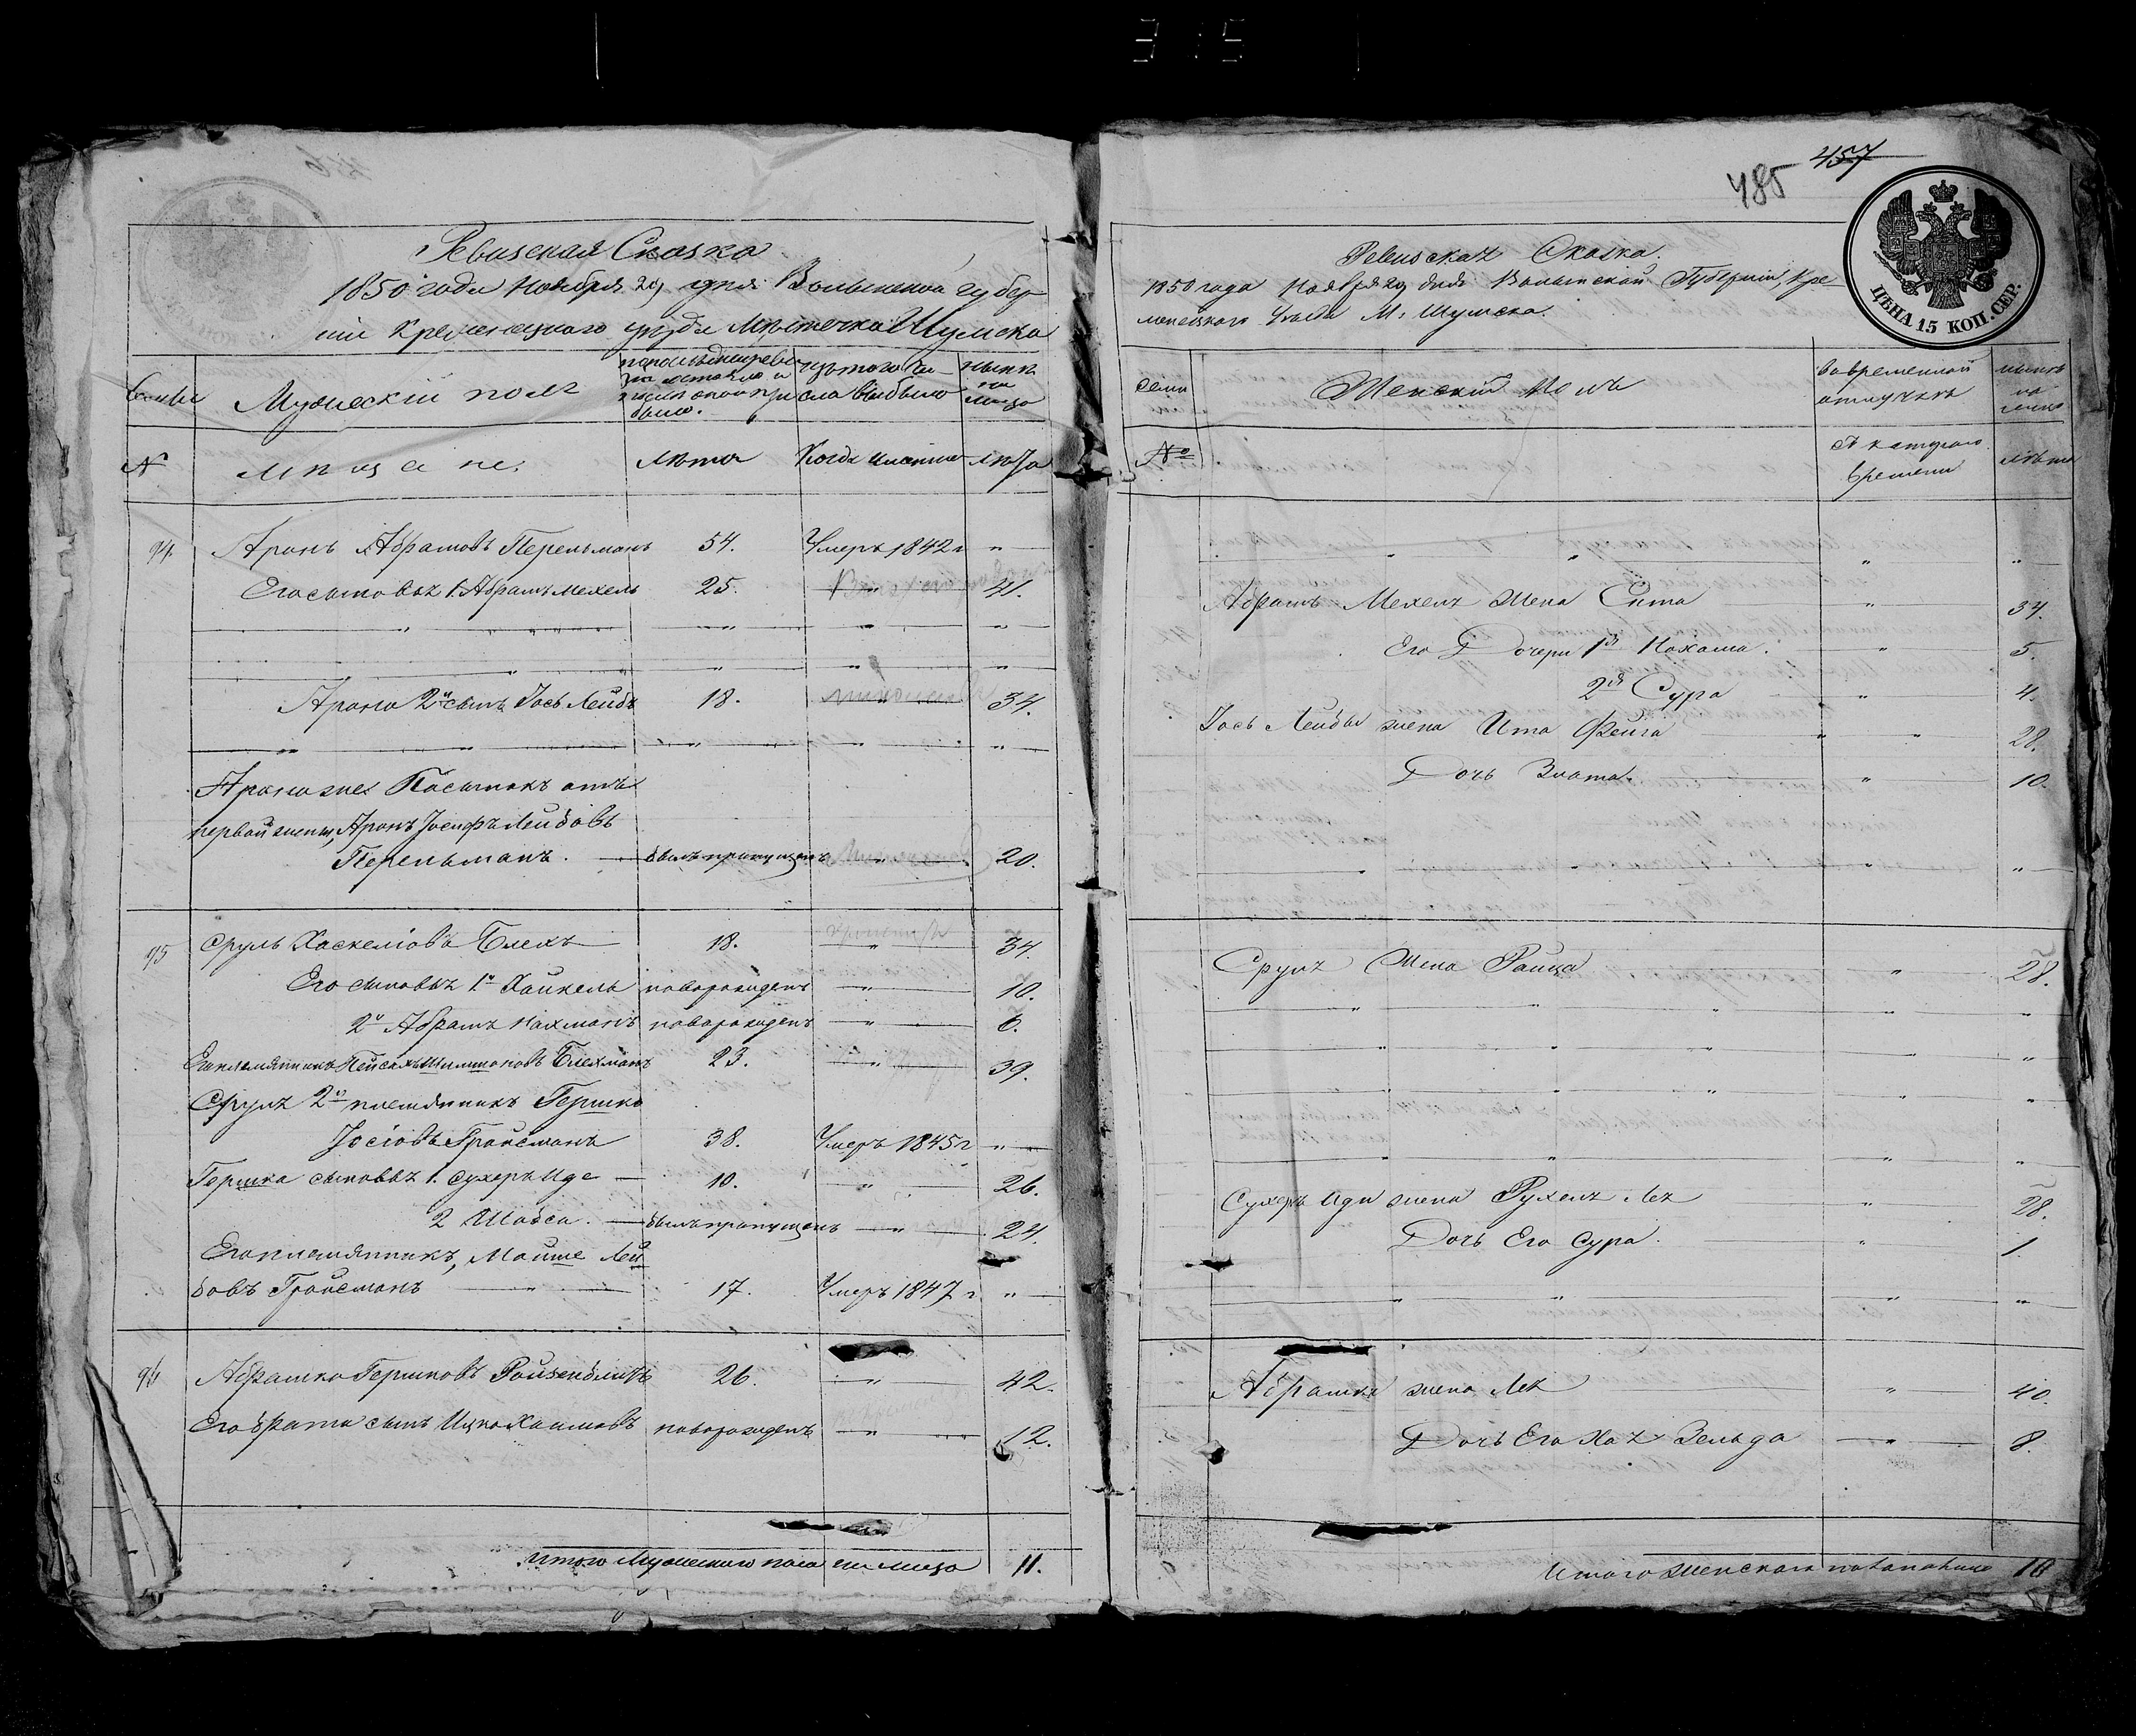 315
Ревизская Сказка
1850 года Ноября 29 дня Волынской губер
нии Кременецкого уезда Местечка Шумска
Семьи
Мужеский полъ
изъ того чи-
сла выбыло
ныне
на
лицо
№
мещане.
Лета
Когда именно
Лета
94
Аронъ Абрамовъ Перельманъ 54. Умеръ 1842 г "
Его сыновья 1. Абрамъ Мехель 25. " 41.
Арона 2й сынъ Иось Лейбъ 18. " 34.
Арона же Пасынокъ отъ
первой жены, Аронъ Іосифъ Лейбовъ
Перельманъ. былъ пропущенъ " 20.
95 Сруль Хаскелiовъ Блехъ 18. " 34.
Его сыновья 1й Хайкель новорожденъ " 10.
2й Абрамъ Нахманъ новорожденъ " 6.
Его племянникъ Пейсахъ Шлиомовъ Блехманъ 23. " 39.
Сруля 2й племянникъ Гершко
Іосiовъ Гройсманъ 38. Умеръ 1845 г "
Гершка сыновья 1. Сухеръ Иде 10. " 26.
2 Шабса. былъ пропущенъ " 24.
Его племянникъ, Мойше Лей
бовъ Гройсманъ 17. Умеръ 1847 г. "
96 Абрамко Гершковъ Ройзенблитъ 26. " 42.
Его брата сынъ Ицко Хаимовъ новорожденъ " 12.
Итого Мужеского пола на лицо 11.
485 457
ЦѢНА 15 КОП. СЕР.
Ревизская Сказка.
1850 года Ноября 29 дня Волынской Губернии, Кре
менецкого Уезда М. Шумска.
семьи
Женский Полъ
Во временной
отлучке
ныне
на
лицо
№
Съ которого
времени
лета
Абрамъ Мехеля Жена Сита " 34.
Его Дочери 1я Нехама. " 5.
2я Сура " 4.
Іось Лейбы жена Ита Фейга " 28.
Дочь Злата. " 10.
Сруля Жена Раица " 28.
Сухеръ Иди жена Рухель Лея " 28.
Дочь Его Сура. " 1.
Абрамка жена Лея " 40.
Дочь Его Хая Зельда " 8.
Итого женского пола на лицо 10